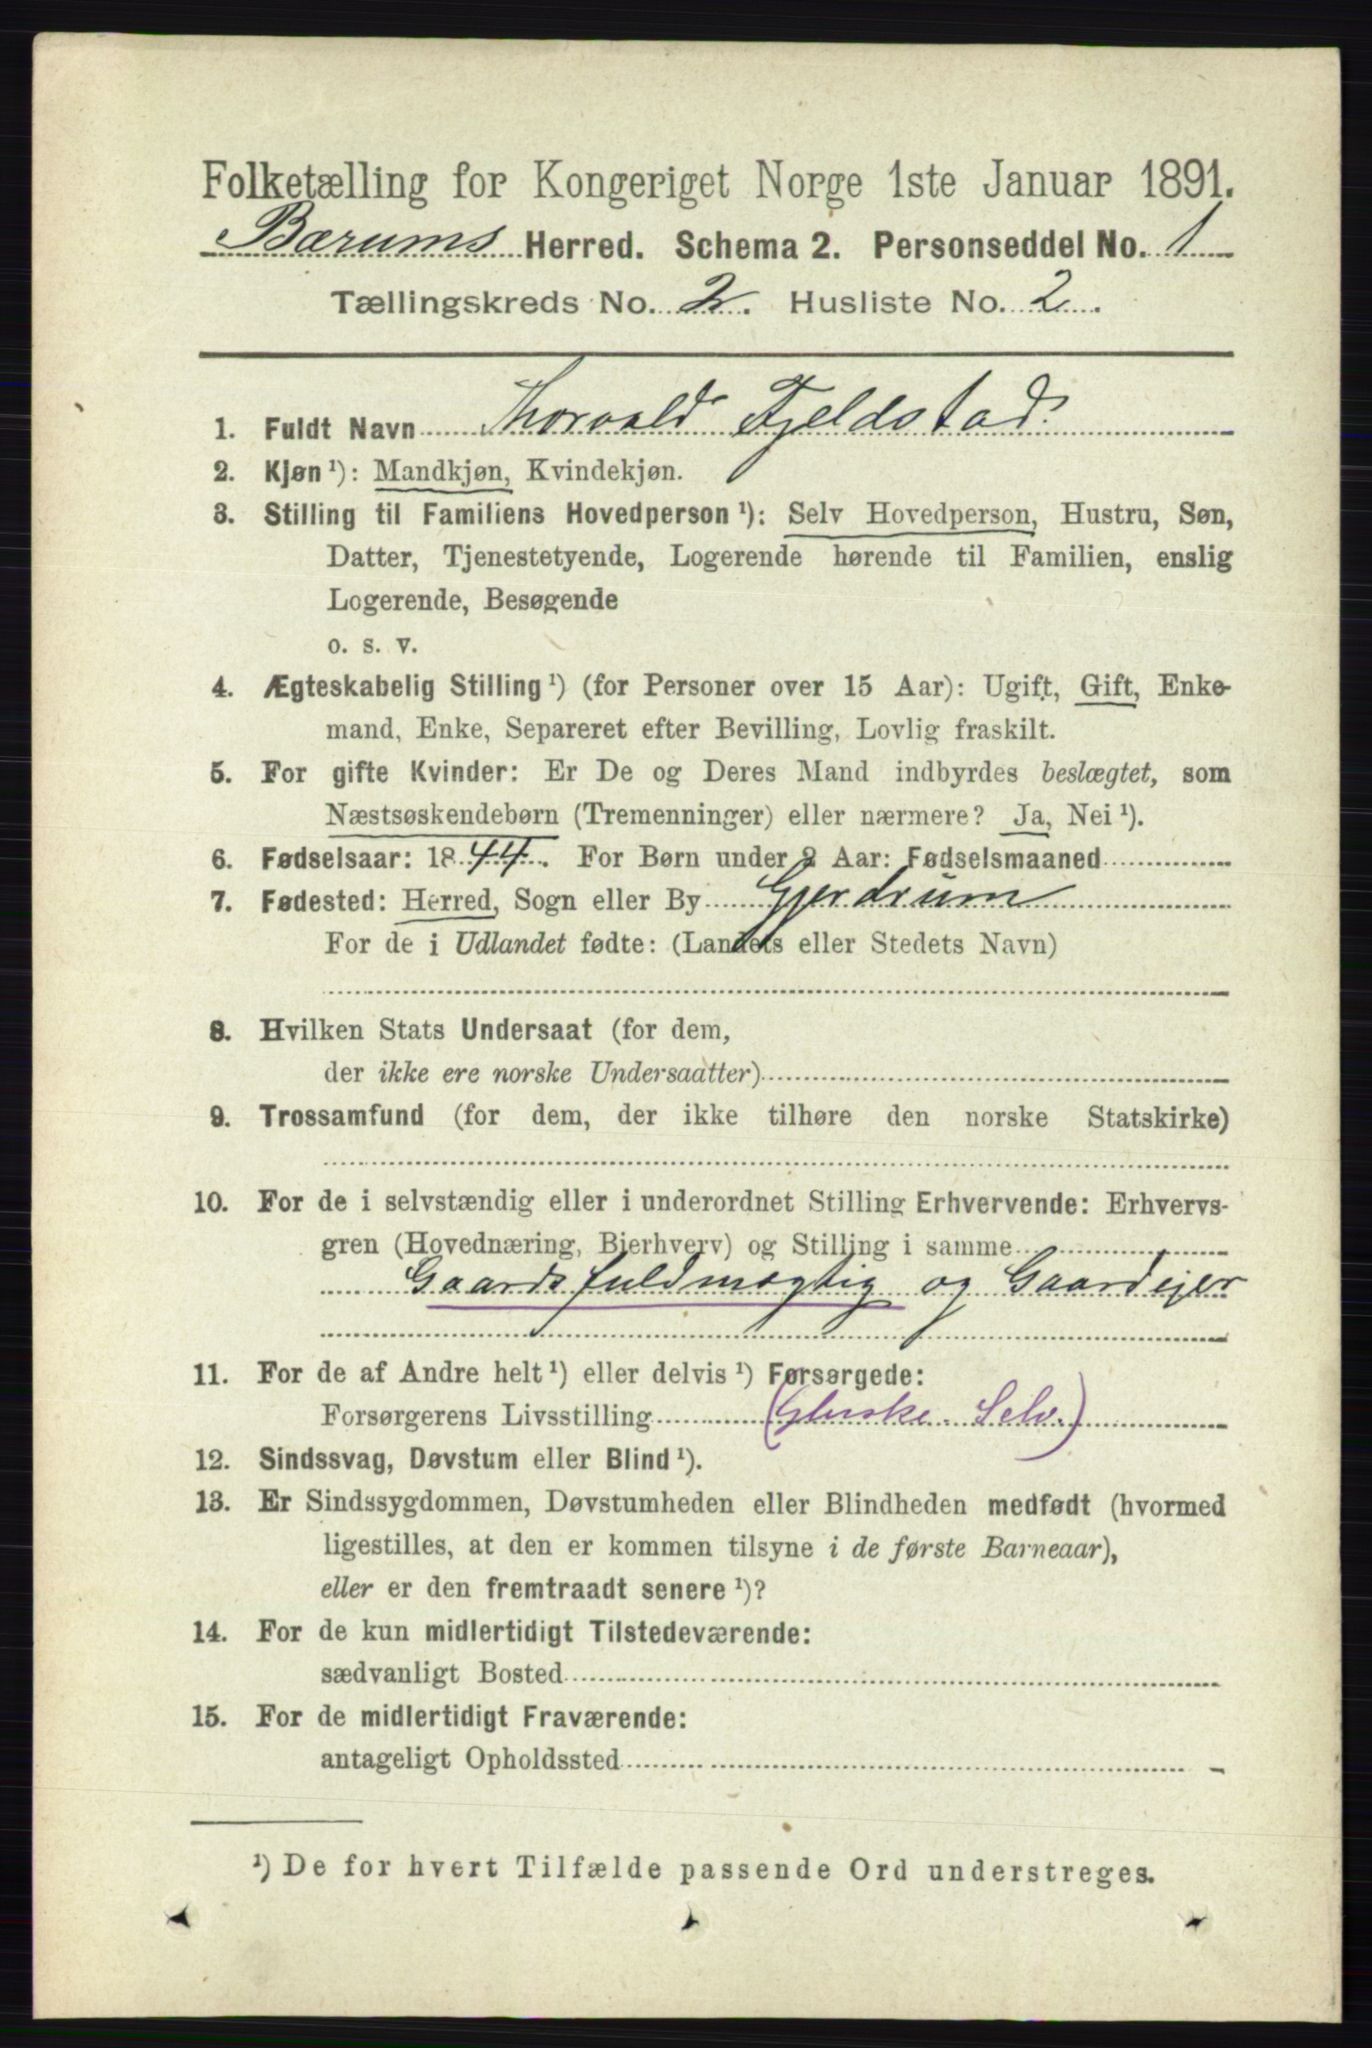 Folketælling for Kongeriget Norge 1ste Januar 1891.
Bærums Herred. Schema 2. Personseddel No. 1
Tællingskreds No. 2. Husliste No. 2.
1. Fuldt Navn Thorvald Fjeldstad.
2. Kjøn ¹): Mandkjøn, Kvindekjøn.
3. Stilling til Familiens Hovedperson ¹): Selv Hovedperson, Hustru, Søn,
Datter, Tjenestetyende, Logerende hørende til Familien, enslig
Logerende, Besøgende
o. s. v.
4. Ægteskabelig Stilling ¹) (for Personer over 15 Aar): Ugift, Gift, Enke-
mand, Enke, Separeret efter Bevilling, Lovlig fraskilt.
5. For gifte Kvinder: Er De og Deres Mand indbyrdes beslægtet, som
Næstsøskendebørn (Tremenninger) eller nærmere? Ja, Nei ¹).
6. Fødselsaar: 1844. For Børn under 2 Aar: Fødselsmaaned
7. Fødested: Herred, Sogn eller By Gjerdrum
For de i Udlandet fødte: (Landets eller Stedets Navn)
8. Hvilken Stats Undersaat (for dem,
der ikke ere norske Undersaatter)
9. Trossamfund (for dem, der ikke tilhøre den norske Statskirke)
10. For de i selvstændig eller i underordnet Stilling Erhvervende: Erhvervs-
gren (Hovednæring, Bierhverv) og Stilling i samme
Gaardsfuldmægtig og Gaardejer
11. For de af Andre helt ¹) eller delvis ¹) Forsørgede:
Forsørgerens Livsstilling Selv.)
12. Sindssvag, Døvstum eller Blind ¹).
13. Er Sindssygdommen, Døvstumheden eller Blindheden medfødt (hvormed
ligestilles, at den er kommen tilsyne i de første Barneaar),
eller er den fremtraadt senere ¹)?
14. For de kun midlertidigt Tilstedeværende:
sædvanligt Bosted
15. For de midlertidigt Fraværende:
antageligt Opholdssted
¹) De for hvert Tilfælde passende Ord understreges.